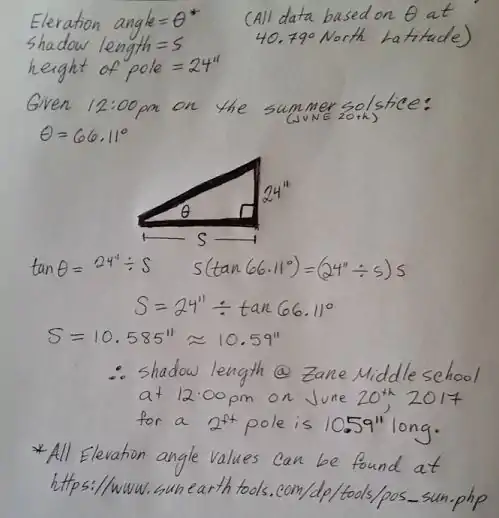 Elevation angle = θ* (All data based on θ at
shadow length = s 40.79° North Latitude)
height of pole = 24"
Given 12:00pm on the summer solstice:
(JUNE 20th)
θ = 66.11°
24"
θ
S
tan θ = 24" ÷ S S(tan 66.11°) = (24" ÷ s) s
S = 24" ÷ tan 66.11°
S = 10.585" ≈ 10.59"
∴ shadow length @ Zane Middle school
at 12:00pm on June 20th, 2017
for a 2ft pole is 10.59" long.
*All Elevation angle values can be found at
https://www.sunearthtools.com/dp/tools/pos_sun.php